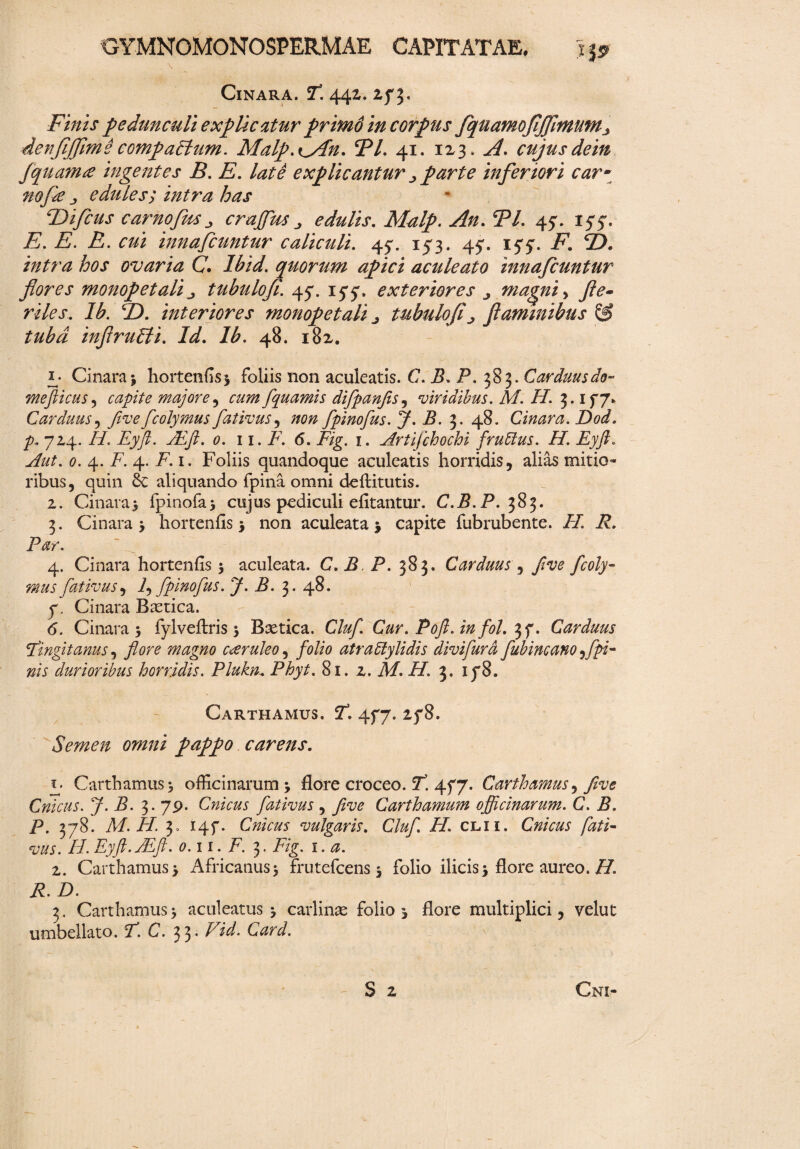 GYMNOMONOSPERMAE CAPITATAE. 139
CINARA. T. 442. 253.
Finis pedunculi explicatur primò in corpus ſquamoſiſſimum,
denſiſſimè compactum. Malp. An. Pl. 41. 123. A. cujus dein
ſquamæ ingentes B. E. latè explicantur, parte inferiori car-
noſæ, edules; intra has
Diſcus carnoſus, craſſus, edulis. Malp. An. Pl. 45. 155.
E. E. E. cui innaſcuntur caliculi. 45. 153. 45. 155. F. D.
intra hos ovaria C. Ibid. quorum apici aculeato innaſcuntur
flores monopetali, tubuloſi. 45. 155. exteriores, magni, ſte-
riles. Ib. D. interiores monopetali, tubuloſi, ſtaminibus &
tubâ inſtructi. Id. Ib. 48. 182.
1. Cinara; hortenſis; foliis non aculeatis. C. B. P. 383. Carduus do-
meſticus, capite majore, cum ſquamis diſpanſis, viridibus. M. H. 3. 157.
Carduus, ſive ſcolymus ſativus, non ſpinoſus. J. B. 3. 48. Cinara. Dod.
p. 724. H. Eyſt. Æſt. o. 11. F. 6. Fig. 1. Artiſchochi fructus. H. Eyſt.
Aut. o. 4. F. 4. F. 1. Foliis quandoque aculeatis horridis, aliàs mitio-
ribus, quin & aliquando ſpinâ omni deſtitutis.
2. Cinara; ſpinoſa; cujus pediculi eſitantur. C. B. P. 383.
3. Cinara; hortenſis; non aculeata; capite ſubrubente. H. R.
Par.
4. Cinara hortenſis; aculeata. C. B. P. 383. Carduus, ſive ſcoly-
mus ſativus, 1, ſpinoſus. J. B. 3. 48.
5. Cinara Bætica.
6. Cinara; ſylveſtris; Bætica. Cluſ. Cur. Poſt. in fol. 35. Carduus
Tingitanus, flore magno cæruleo, folio atractylidis diviſurâ ſubincano, ſpi-
nis durioribus horridis. Plukn. Phyt. 81. 2. M. H. 3. 158.
CARTHAMUS. T. 457. 258.
Semen omni pappo carens.
1. Carthamus; officinarum; flore croceo. T. 457. Carthamus, ſive
Cnicus. J. B. 3. 79. Cnicus ſativus, ſive Carthamum officinarum. C. B.
P. 378. M. H. 3. 145. Cnicus vulgaris. Cluſ. H. CLII. Cnicus ſati-
vus. H. Eyſt. Æſt. o. 11. F. 3. Fig. 1. a.
2. Carthamus; Africanus; fruteſcens; folio ilicis; flore aureo. H.
R. D.
3. Carthamus; aculeatus; carlinæ folio; flore multiplici, velut
umbellato. T. C. 33. Vid. Card.
S 2 CNI-